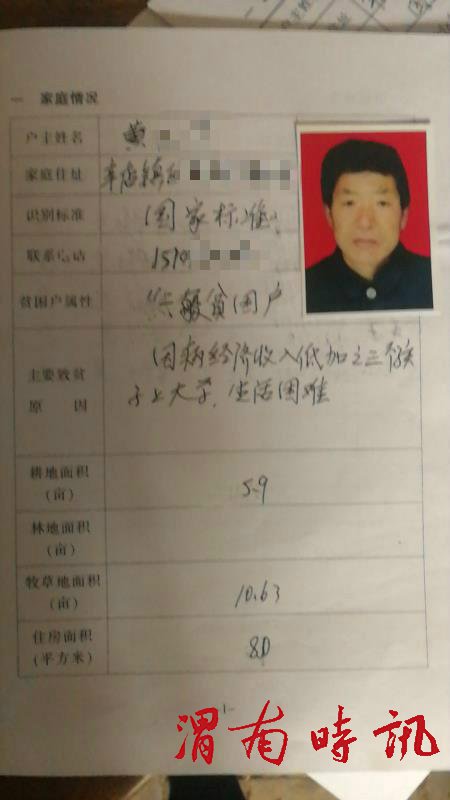 一 家庭情况
户主姓名 黄
家庭住址 车店镇
识别标准 国家标准
联系电话 1519
贫困户属性 一般贫困户
主要致贫
原 因
因病经济收入低加之三个孩
子上大学,生活困难
耕地面积
(亩)
5.9
林地面积
(亩)
牧草地面积
(亩)
10.63
住房面积
(平方米)
80
-1-
渭南時訊